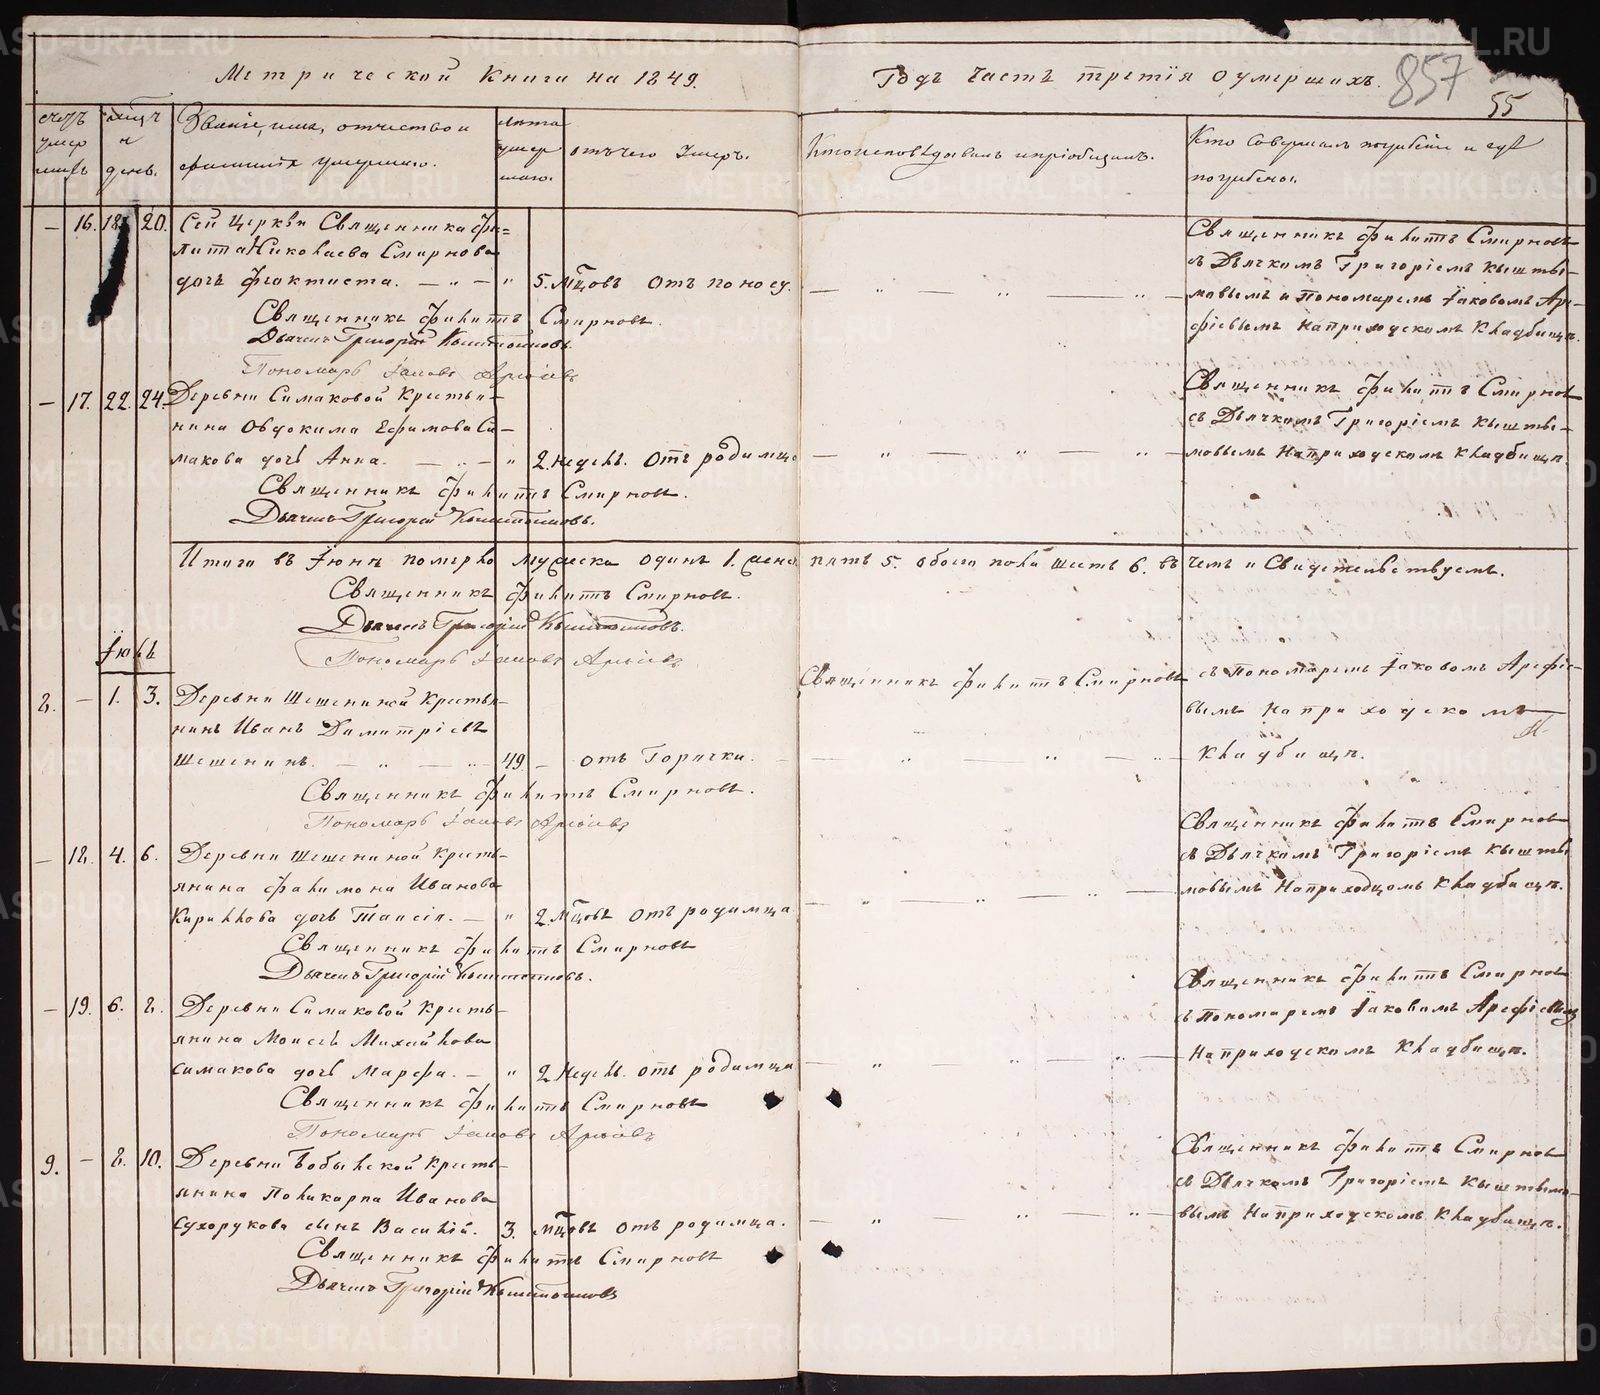 Метрической Книги на 1849.
Годъ Часть третія о умершихъ.
857
55
счетъ умер шихъ
день.
Званіе, имя, отчество и фамилія умершаго.
лѣта умер шаго.
отъ чего умеръ.
Кто исповѣдывалъ и пріобщалъ.
Кто совершалъ погребеніе и гдѣ погребены.
— 16. 18. 20. Сей Церкви Священника Фи=
липа Николаева Смирнова
дочь Фіоктиста. — „ — „ 5. мцовъ Отъ поносу.
Священникъ Филиппъ Смирновъ
съ Дьячкомъ Григоріемъ Кышты-
мовымъ и Пономаремъ Іаковомъ Аре-
фіевымъ на приходскомъ кладбищѣ.
Священникъ Филиппъ Смирновъ.
Дьячекъ Григорій Кыштымовъ.
Пономарь Іаковъ Арефьевъ
— 17. 22. 24. Деревни Симаковой Крестья-
нина Овдокима Ефимова Си-
макова дочь Анна. — „ — „ 2. недѣль. Отъ родимца
Священникъ Филиппъ Смирновъ
съ Дьячкомъ Григоріемъ Кышты-
мовымъ на приходскомъ кладбищѣ.
Священникъ Филиппъ Смирновъ.
Дьячекъ Григорій Кыштымовъ.
Итого въ Іюнѣ померло мужеска одинъ 1. женска пять 5. обоего пола шесть 6. въ чемъ и Свидетельствуемъ.
Священникъ Филиппъ Смирновъ.
Дьячекъ Григорій Кыштымовъ.
Пономарь Іаковъ Арефьевъ
Іюль
8. — 1. 3. Деревни Шешениной Крестья-
нинъ Иванъ Димитріевъ
Шешенинъ. — „ — „ 49 — отъ Горячки.
Священникъ Филиппъ Смирновъ съ Пономаремъ Іаковомъ Арефіе-
вымъ на приходскомъ
кладбищѣ.
Священникъ Филиппъ Смирновъ.
Пономарь Іаковъ Арефьевъ
— 18. 4. 6. Деревни Шешениной Кресть-
янина Филимона Иванова
Кириллова дочь Таисія. — „ 2. мцовъ отъ родимца
Священникъ Филиппъ Смирновъ
съ Дьячкомъ Григоріемъ Кышты-
мовымъ на приходцомъ кладбищѣ.
Священникъ Филиппъ Смирновъ
Дьячекъ Григорій Кыштымовъ.
— 19. 6. 8. Деревни Симаковой Кресть-
янина Моисея Михайлова
Симакова дочь Марѳа. — „ 2. недѣль. отъ родимца
Священникъ Филиппъ Смирновъ
съ Пономаремъ Іаковомъ Арефіевымъ
на приходскомъ кладбищѣ.
Священникъ Филиппъ Смирновъ
Пономарь Іаковъ Арефьевъ
9. — 8. 10. Деревни Бобыльской Кресть-
янина Поликарпа Иванова
Сухорукова сынъ Василій. 3. мцовъ отъ родимца.
Священникъ Филиппъ Смирновъ
съ Дьячкомъ Григоріемъ Кыштымо-
вымъ на приходскомъ кладбищѣ.
Священникъ Филиппъ Смирновъ
Дьячекъ Григорій Кыштымовъ
METRIKI.GASO-URAL.RU